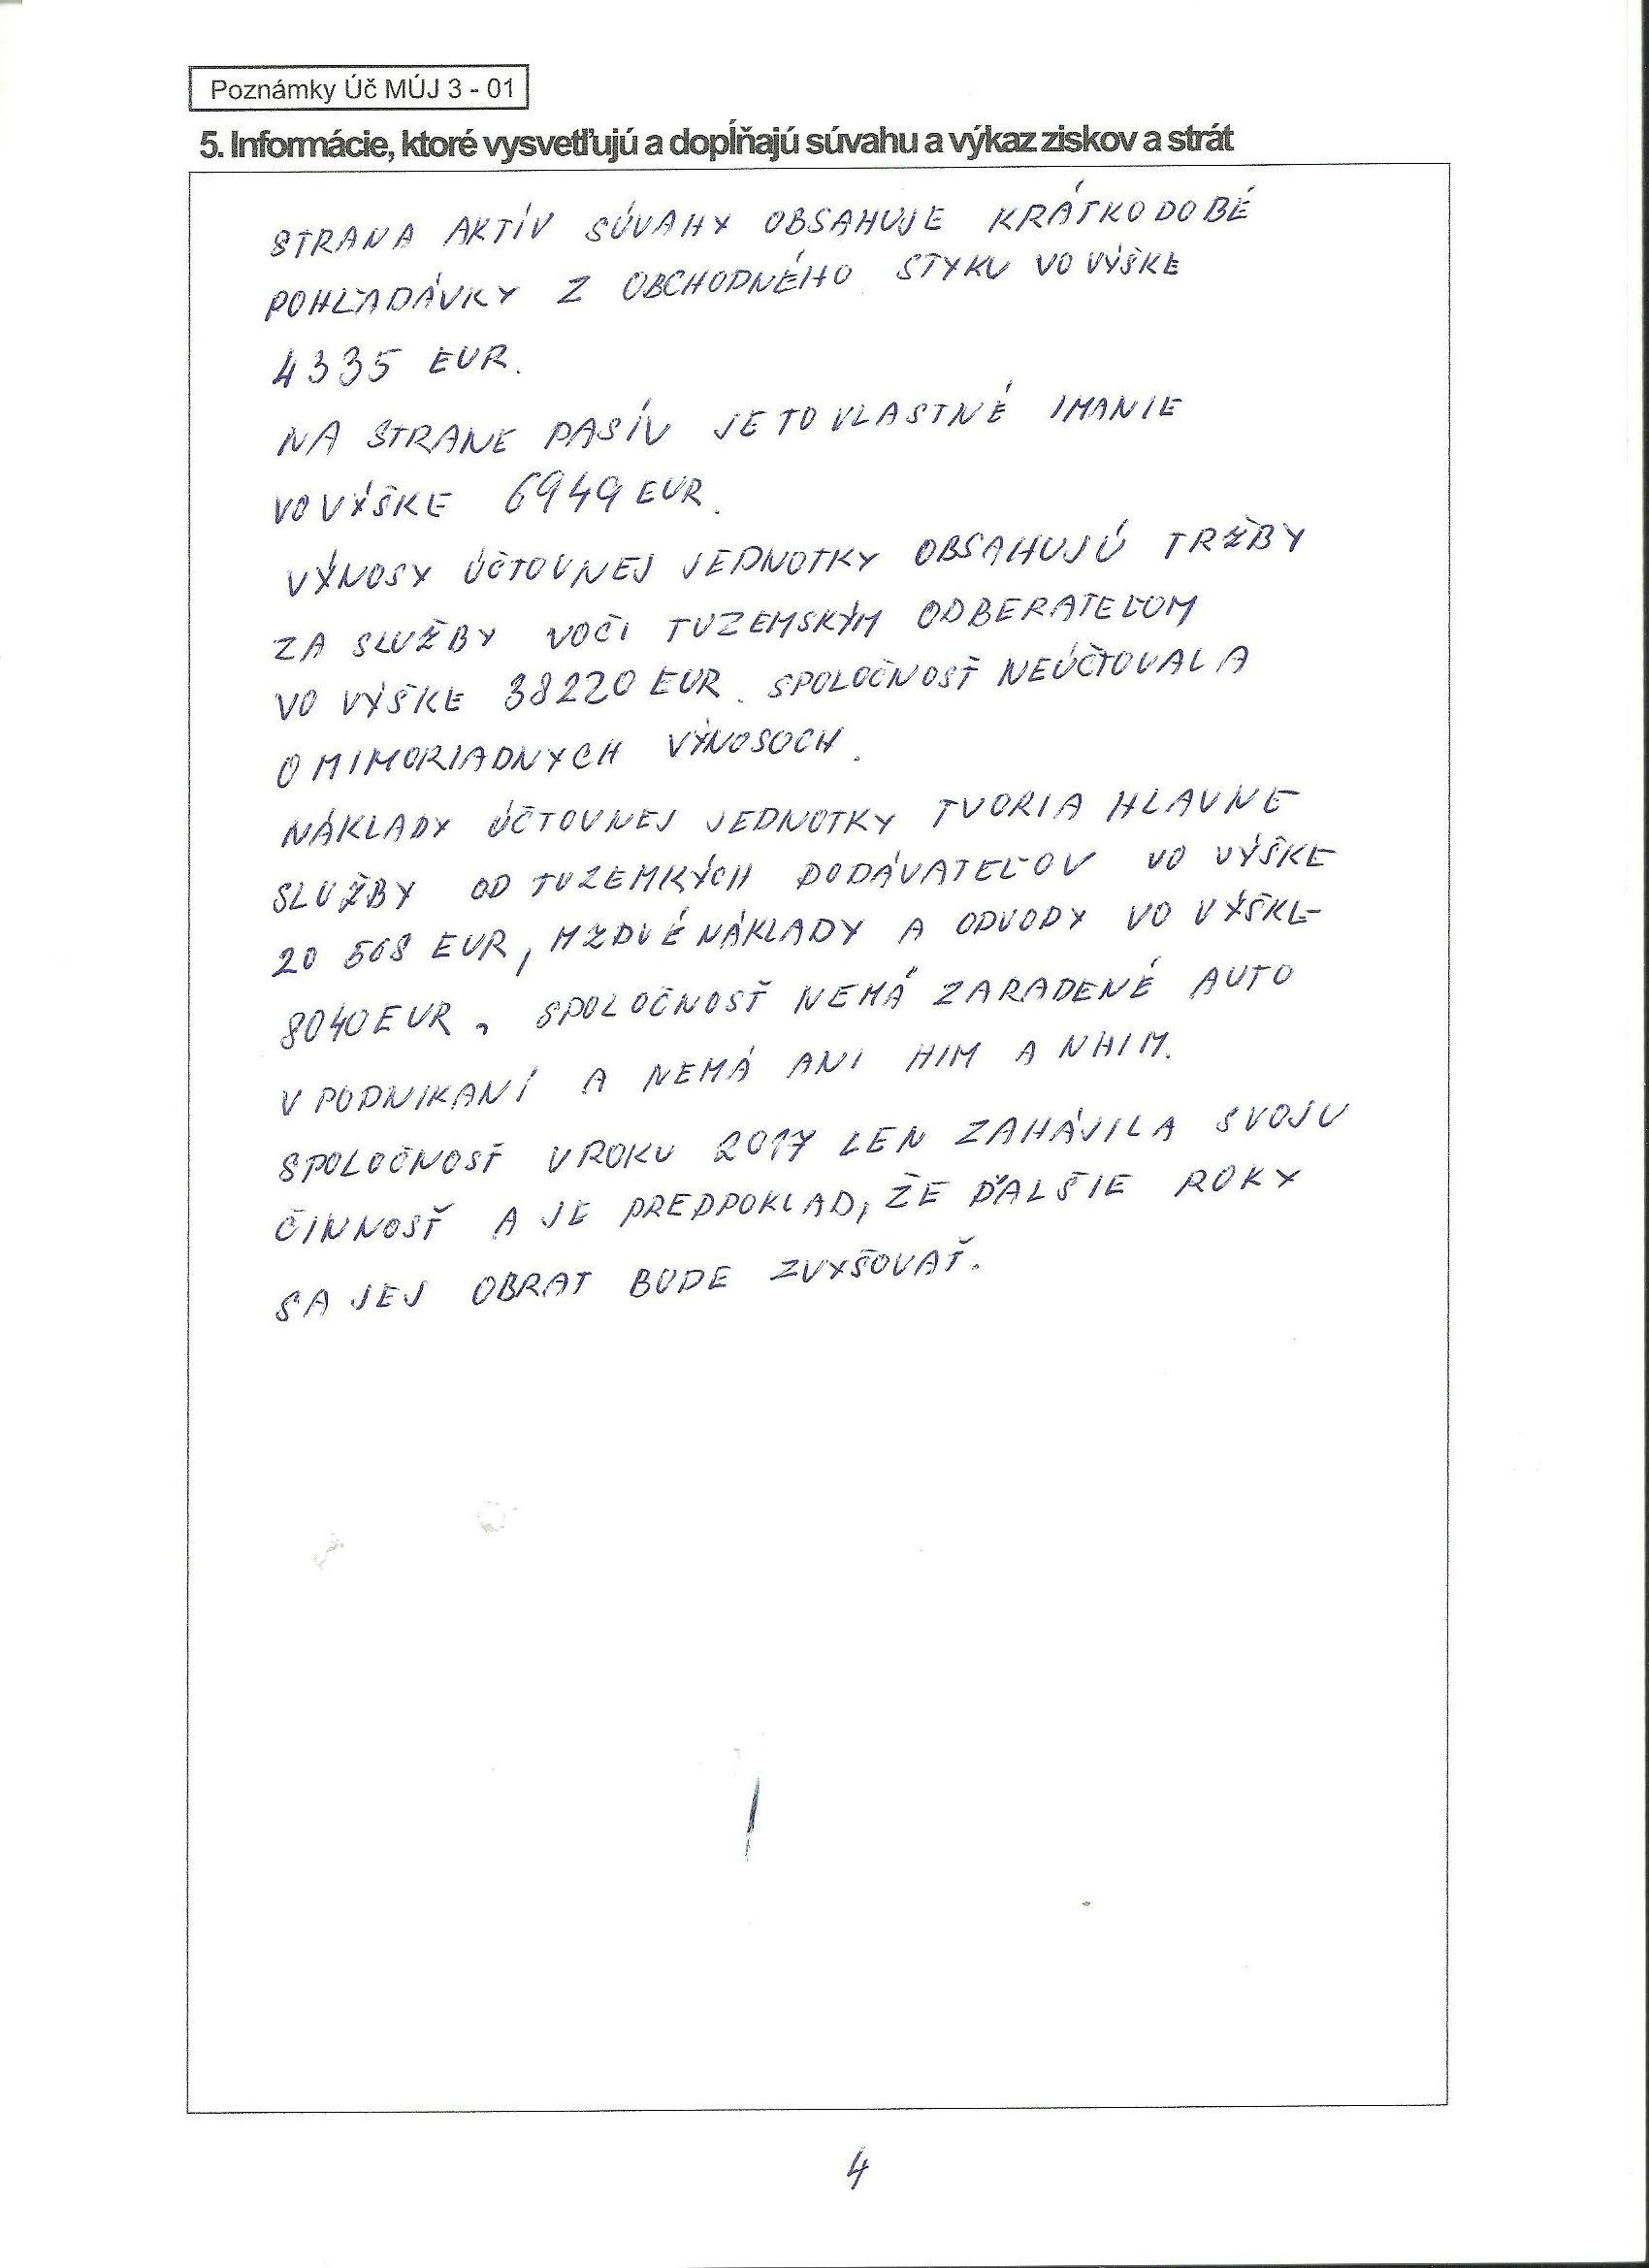 Poznámky Úč MÚJ 3 - 01
5. Informácie, ktoré vysvetľujú a dopĺňajú súvahu a výkaz ziskov a strát
STRANA AKTÍV SÚVAHY OBSAHUJE KRÁTKODOBÉ
POHĽADÁVKY Z OBCHODNÉHO STYKU VO VÝŠKE
4335 EUR.
NA STRANE PASÍV JE TO VLASTNÉ IMANIE
VO VÝŠKE 6949 EUR.
VÝNOSY ÚČTOVNEJ JEDNOTKY OBSAHUJÚ TRŽBY
ZA SLUŽBY VOČI TUZEMSKÝM ODBERATEĽOM
VO VÝŠKE 38220 EUR. SPOLOČNOSŤ NEÚČTOVALA
O MIMORIADNYCH VÝNOSOCH.
NÁKLADY ÚČTOVNEJ JEDNOTKY TVORIA HLAVNE
SLUŽBY OD TUZEMKÝCH DODÁVATEĽOV VO VÝŠKE
20 508 EUR, MZDVÉ NÁKLADY A ODVODY VO VÝŠKE
8040 EUR. SPOLOČNOSŤ NEMÁ ZARADENÉ AUTO
V PODNIKANÍ A NEMÁ ANI HIM A NHIM.
SPOLOČNOSŤ V ROKU 2017 LEN ZAHÁJILA SVOJU
ČINNOSŤ A JE PREDPOKLAD, ŽE ĎALŠIE ROKY
SA JEJ OBRAT BUDE ZVYŠOVAŤ.
4